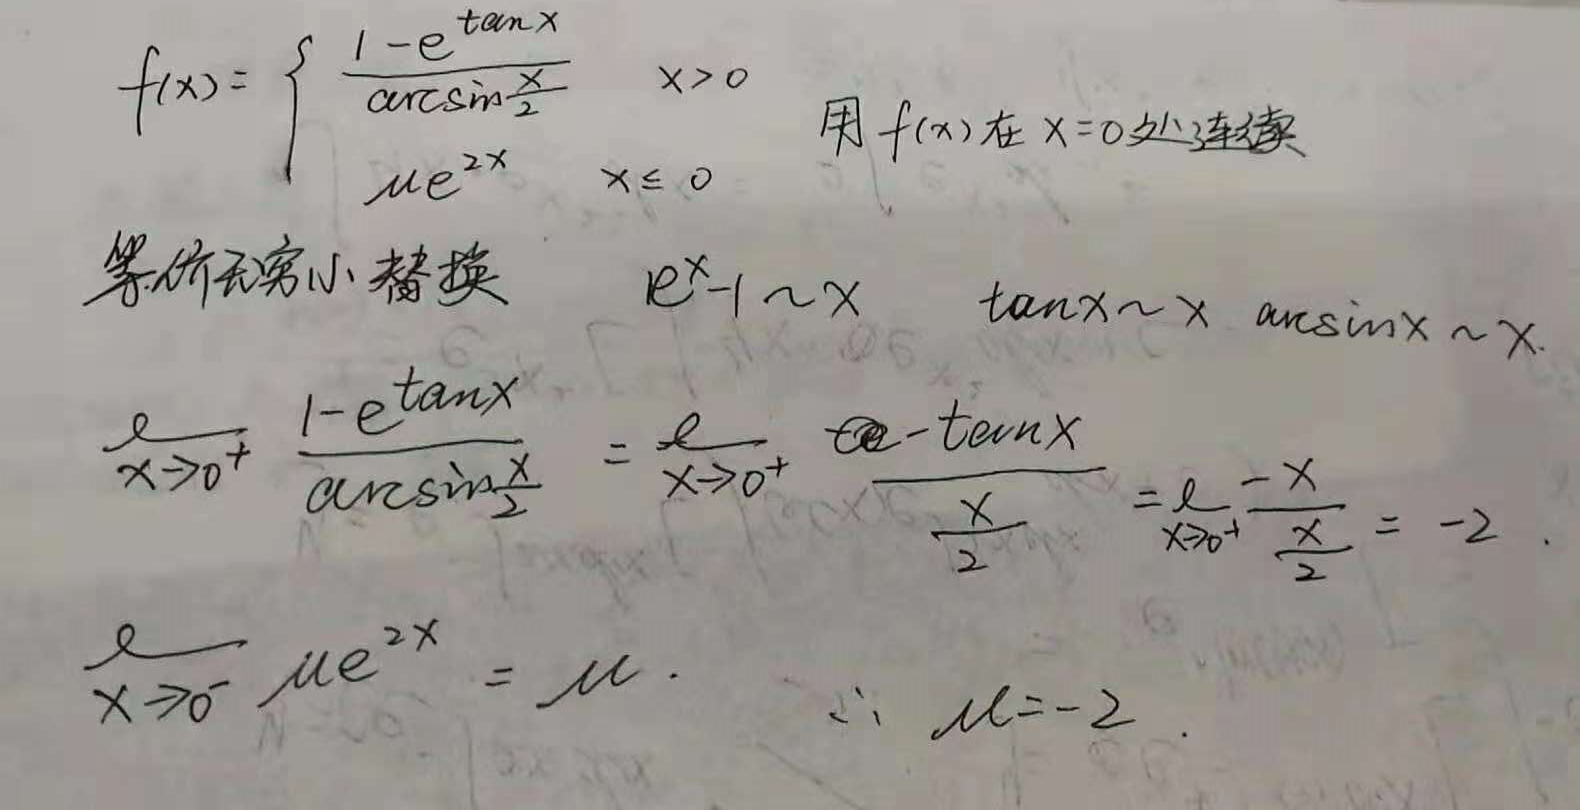 f(x) = { (1-e^{tanx})/(arcsin x/2)  x>0
μe^{2x}  x≤0
用 f(x) 在 x=0处连续
等价无穷小替换  e^x-1~x  tanx~x  arcsinx~x.
l x→0⁺ (1-e^{tanx})/(arcsin x/2) = l x→0⁺ (-tanx)/(x/2) = l x→0⁺ (-x)/(x/2) = -2 .
l x→0⁻ μe^{2x} = μ .  ∴ μ=-2 .